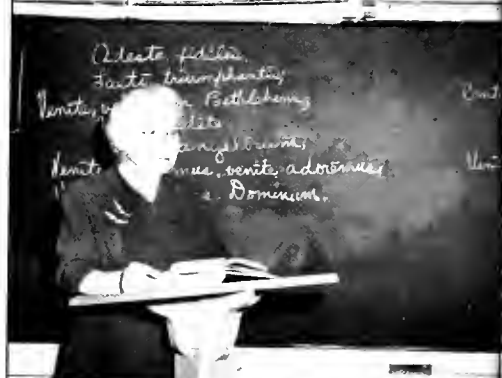 Adeste fidēles,
Laetī triumphantēs,
Venīte, in Bethlehem,
angelōrum,
Venīte venīte adorēmus,
Dominum.
Ven